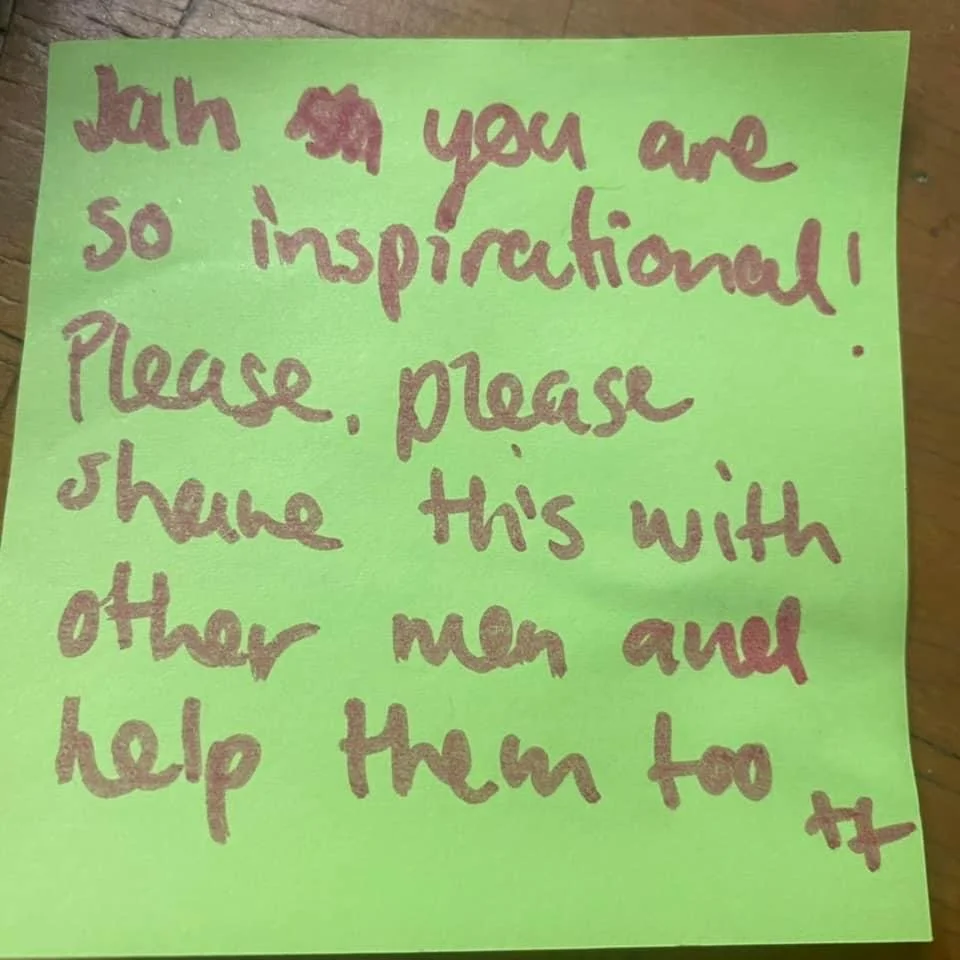 Jah you are
so inspirational!
Please, please
share this with
other men and
help them too